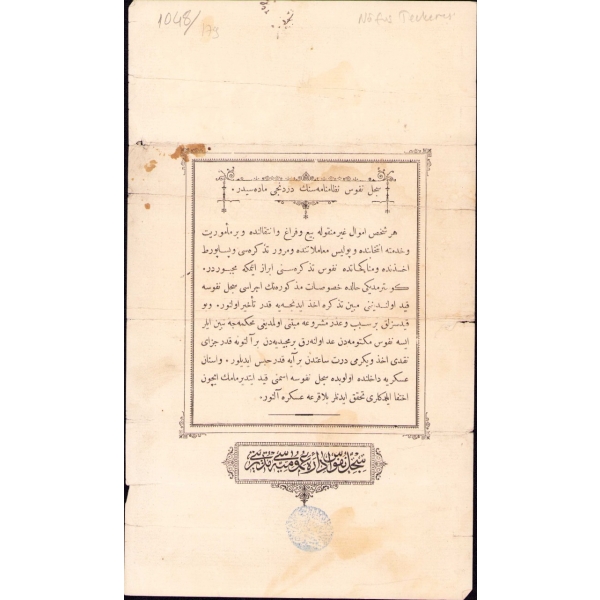 1048/179
Nüfus Tezkeresi
سجل نفوس نظامنامه‌سنك دردنجی ماده‌سیدر .
هر شخص اموال غیر منقوله بیع و فراغ و انتقالنده و بر مأموریت
و خدمته انتخابنده و پولیس معاملاتنده و مرور تذكره‌سی و پساپورط
اخذنده و مناكحاتنده نفوس تذكره‌سنی ابراز ایتمكه مجبوردر .
كوسترمدیكی حالده خصوصات مذكوره‌نك اجراسی سجل نفوسه
قید اولندیغنی مبین تذكره اخذ ایدنجه‌یه قدر تأخیر اولنور . و بو
قیدسزلق بر سبب و عذر مشروعه مبنی اولمدیغی محكمه‌جه تبین ایلر
ایسه نفوس مكتومه‌دن عد اوله‌رق بر مجیدیه‌دن بر آلتونه قدر جزای
نقدی اخذ و یكرمی درت ساعتدن بر آیه قدر حبس ایدیلور . و اسنان
عسكریه داخلنده اولوبده سجل نفوسه اسمنی قید ایتدیرمامك ایچون
اختفا ایلدكلری تحقق ایدنلر بلاقرعه عسكره آلنور .
سجل نفوس اداره عمومیه‌سی